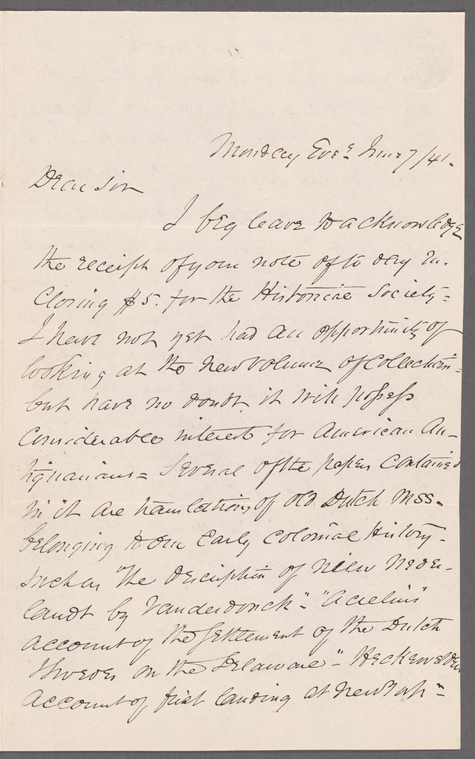 Monday Eveg June 7/41.
Dear Sir
I beg leave to acknowledge
the receipt of your note of to day in-
closing $5. for the Historical Society-
I have not yet had an opportunity of
looking at the new volume of Collections-
but have no doubt it will possess
considerable interest for American An-
tiquarians = Several of the papers contained
in it are translations of old Dutch Mss.
belonging to our early Colonial History-
Such as "the description of Nieu Neder-
landt by Vanderdonck"- "Acrelius'
account of the Settlement of the Dutch
Swedes on the Delaware"- Heckewelders
account of first landing at New York"=